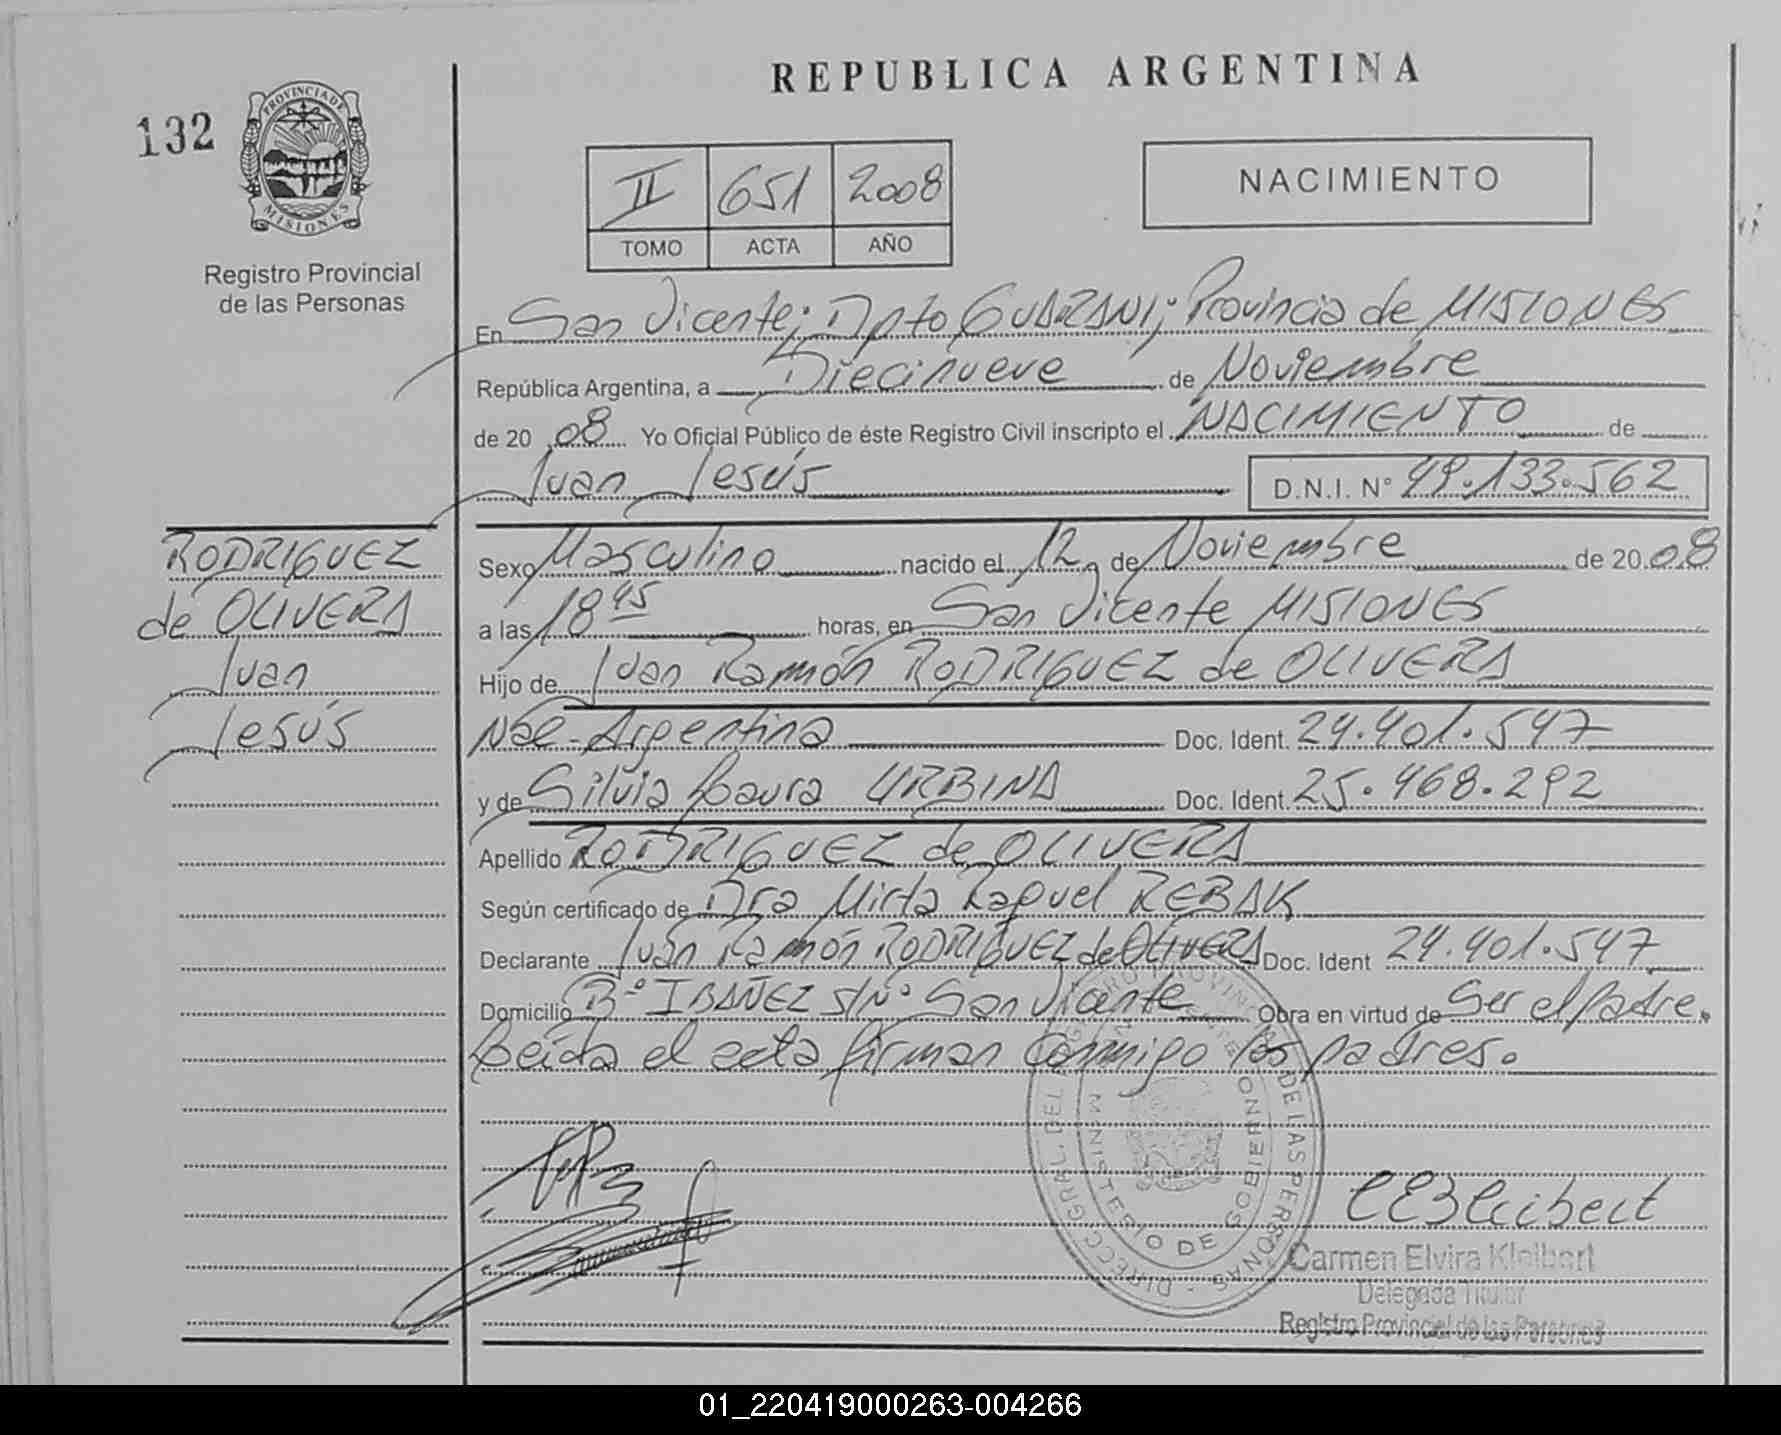 REPUBLICA ARGENTINA
132
PROVINCIA DE MISIONES
Registro Provincial
de las Personas
II 651 2008
TOMO ACTA AÑO
NACIMIENTO
En San Vicente; Dpto GUARANI; Provincia de MISIONES
República Argentina, a Diecinueve de Noviembre
de 20 08 Yo Oficial Público de éste Registro Civil inscripto el NACIMIENTO de
Juan Jesús D.N.I. N° 49.133.562
RODRIGUEZ
de OLIVERA
Juan
Jesús
Sexo Masculino nacido el 12 de Noviembre de 20 08
a las 18 45 horas, en San Vicente MISIONES
Hijo de Juan Ramón RODRIGUEZ de OLIVERA
Nac- Argentina Doc. Ident. 24.401.547
y de Silvia Laura URBINA Doc. Ident. 25.468.292
Apellido RODRIGUEZ de OLIVERA
Según certificado de Dra Mirta Raquel REBAK
Declarante Juan Ramón RODRIGUEZ de OLIVERA Doc. Ident 24.401.547
Domicilio B° IBAÑEZ S/N° San Vicente Obra en virtud de Ser el padre.
Leída el acta firman conmigo los padres.
DIRECC. GRAL. DEL REGISTRO PROVINCIAL DE LAS PERSONAS
MINISTERIO DE GOBIERNO
Carmen Elvira Kleibert
Delegada Titular
Registro Provincial de las Personas
01_220419000263-004266